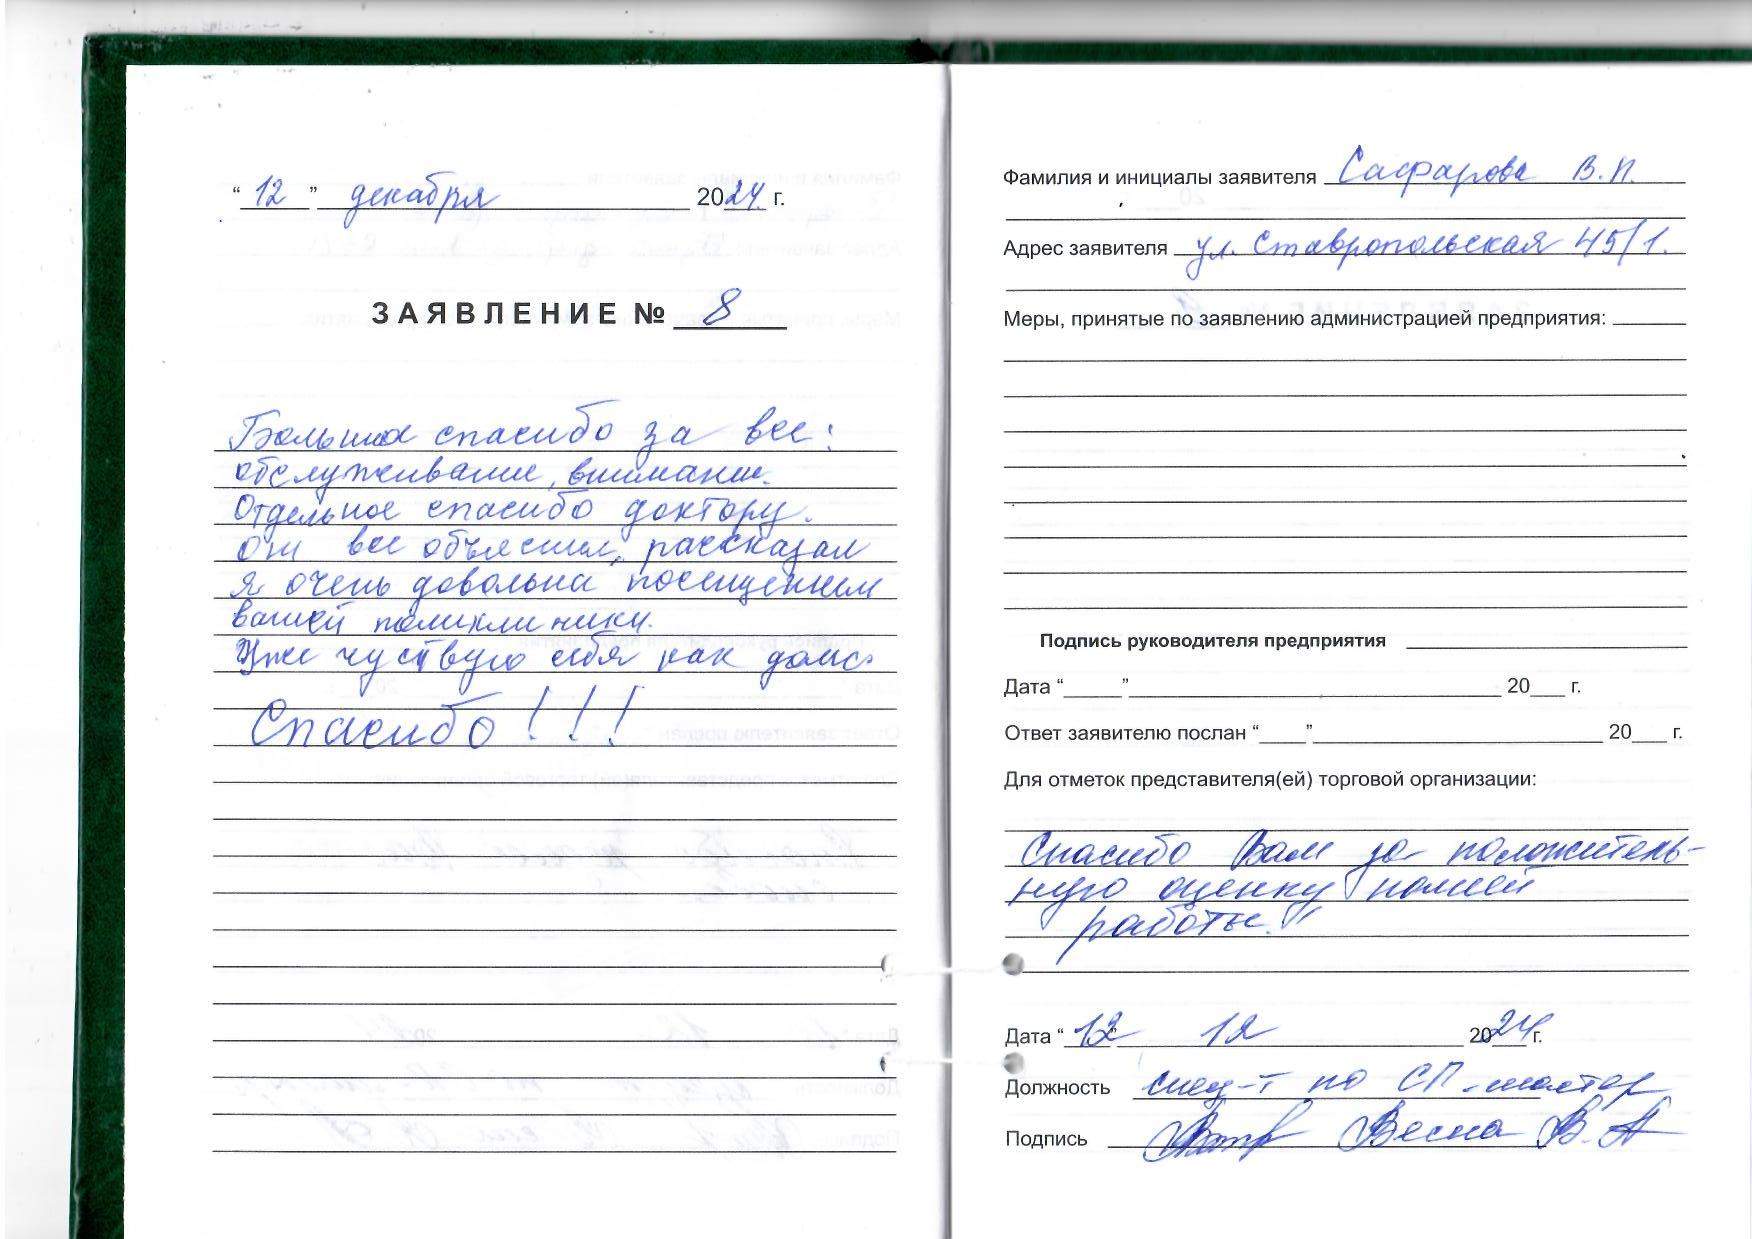 “12” декабря 2024. г.
ЗАЯВЛЕНИЕ № 8
Большое спасибо за все:
обслуживание, внимание.
Отдельное спасибо доктору.
Он все объяснил, рассказал
Я очень довольна посещением
вашей поликлиники.
Уже чуствую себя как дома.
Спасибо!!!
Фамилия и инициалы заявителя Сафарова В.П.
Адрес заявителя ул. Ставропольская 45/1.
Меры, принятые по заявлению администрацией предприятия:
Подпись руководителя предприятия
Дата “ ” 20 г.
Ответ заявителю послан “ ” 20 г.
Для отметок представителя(ей) торговой организации:
Спасибо Вам за положитель-
ную оценку нашей
работы.
Дата “12” 12 2024 г.
Должность спец-т по СП
Подпись Весна В.А